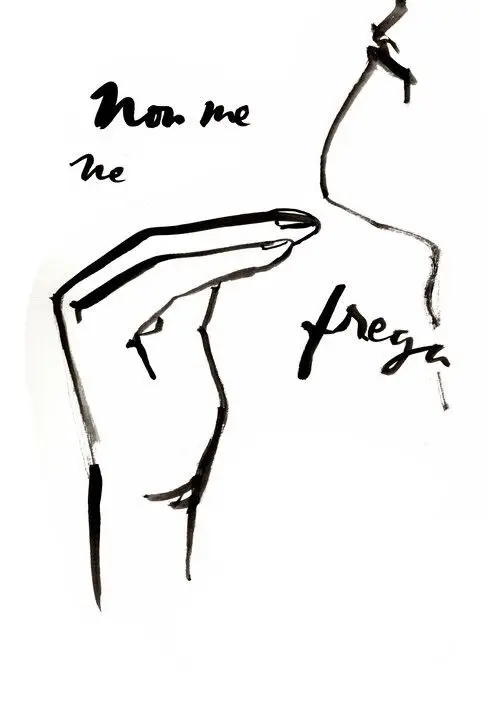 Non me
ne
frega